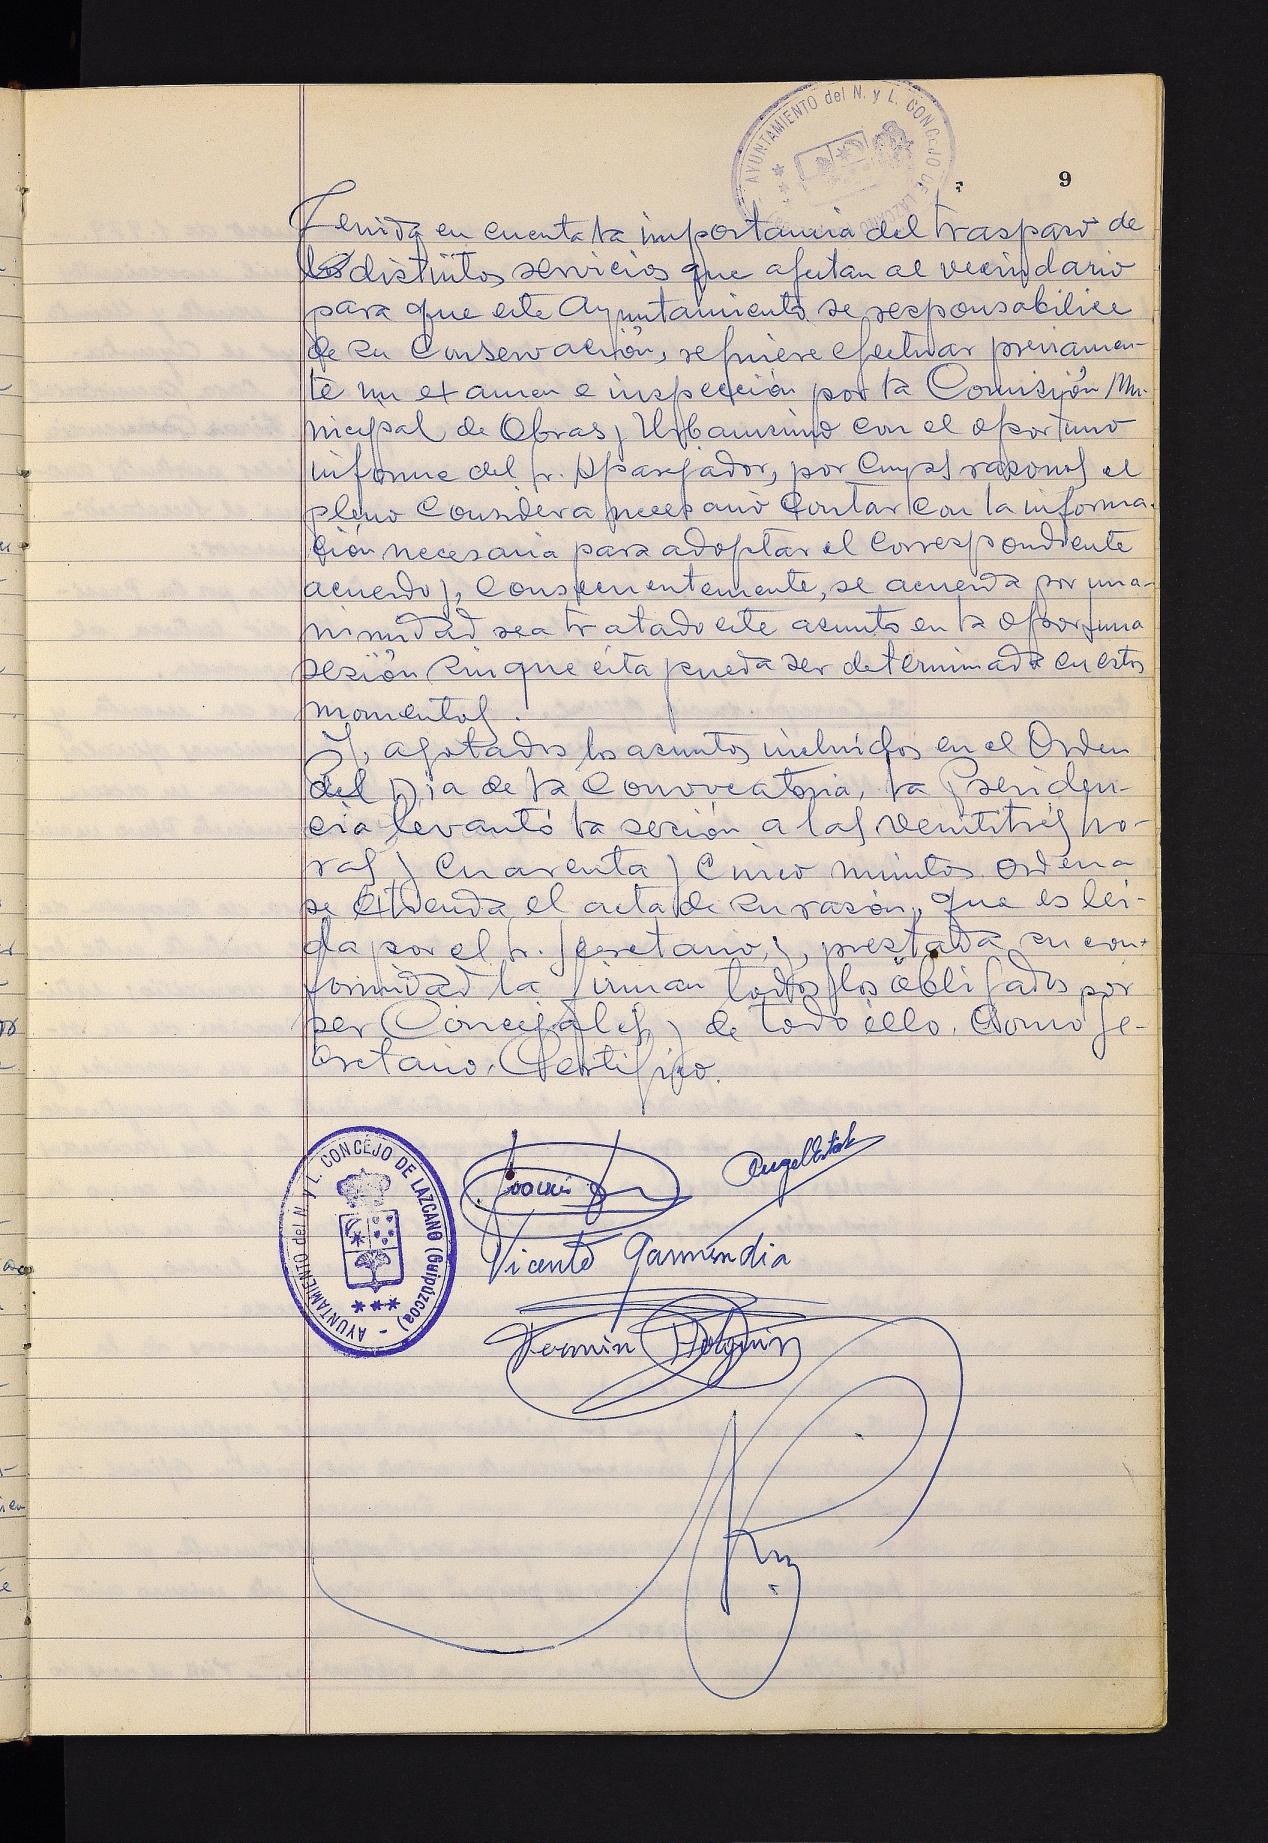 AYUNTAMIENTO del N. y L. CONCEJO DE LAZCANO
9
Tenida en cuenta la importancia del traspaso de
los distintos servicios que afectan al vecindario
para que este Ayuntamiento se responsabilice
de su conservación, refiere efectuar previamen-
te un examen e inspección por la Comisión Mu-
nicipal de Obras y Urbanismo con el oportuno
informe del Sr. Aparejador, por cuyas razones el
pleno considera necesario contar con la informa-
ción necesaria para adoptar el correspondiente
acuerdo y, consecuentemente, se acuerda por una-
nimidad sea tratado este asunto en la oportuna
sesión sin que ésta pueda ser determinada en estos
momentos.
Y, agotados los asuntos incluídos en el Orden
del Dia de la Convocatoria, la Presiden-
cia levantó la sesión a las veintitrés ho-
ras y cuarenta y cinco minutos. Ordena
se extienda el acta de su razón, que es leí-
da por el Sr. Secretario, y, prestada su con-
formidad la firman todos los obligados por
ser Concejales y de todo ello, como Se-
cretario, Certifico.
AYUNTAMIENTO del N. y L. CONCEJO DE LAZCANO (Guipúzcoa)
Vicente Garmendia
Fermin